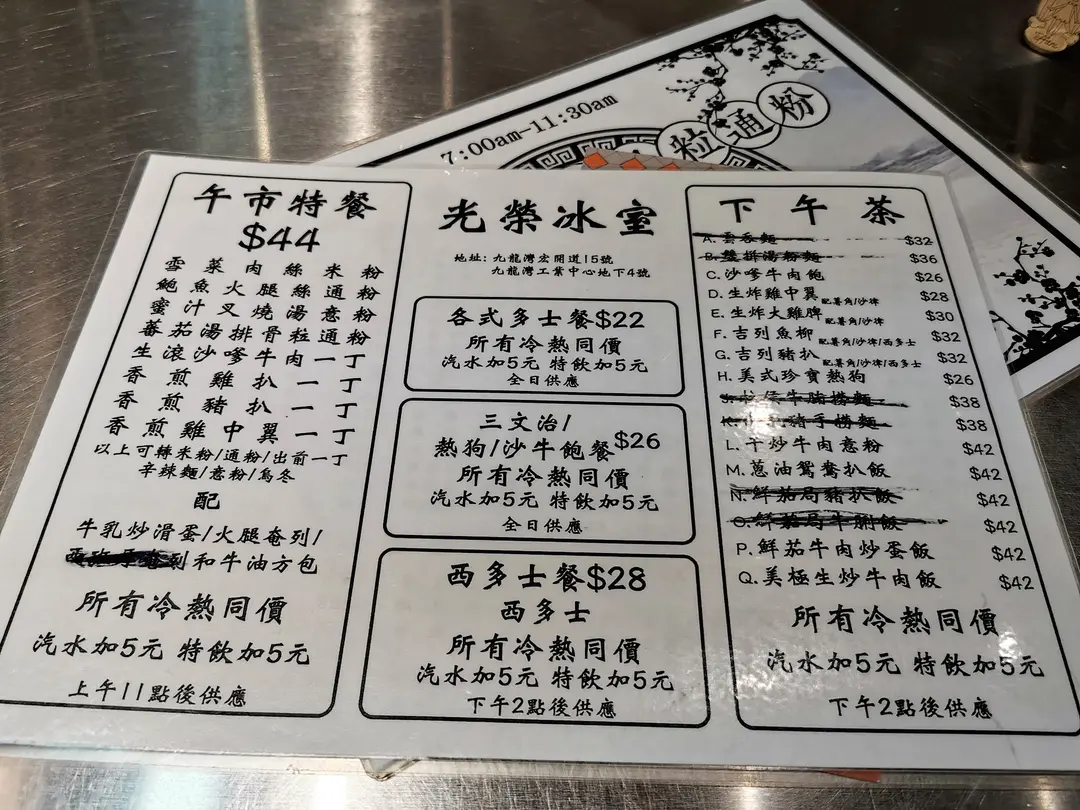 7:00am-11:30am
粒通粉
午市特餐
$44
雪菜肉絲米粉
鮑魚火腿絲通粉
蜜汁叉燒湯意粉
蕃茄湯排骨粒通粉
生滾沙嗲牛肉一丁
香煎雞扒一丁
香煎豬扒一丁
香煎雞中翼一丁
以上可轉米粉/通粉/出前一丁
辛辣麵/意粉/烏冬
配
牛乳炒滑蛋/火腿奄列/
奄列和牛油方包
所有冷熱同價
汽水加5元 特飲加5元
上午11點後供應
光榮冰室
地址: 九龍灣宏開道15號
九龍灣工業中心地下4號
各式多士餐$22
所有冷熱同價
汽水加5元 特飲加5元
全日供應
三文治/
熱狗/沙牛飽餐$26
所有冷熱同價
汽水加5元 特飲加5元
全日供應
西多士餐$28
西多士
所有冷熱同價
汽水加5元 特飲加5元
下午2點後供應
下午茶
A. 雲吞麵 $32
B. 雙拼湯粉麵 $36
C. 沙嗲牛肉飽 $26
D. 生炸雞中翼 配薯角/沙律 $28
E. 生炸大雞髀 配薯角/沙律 $30
F. 吉列魚柳 配薯角/沙律/西多士 $32
G. 吉列豬扒 配薯角/沙律/西多士 $32
H. 美式珍寶熱狗 $26
J. 牛腩撈麵 $38
K. 豬手撈麵 $38
L. 干炒牛肉意粉 $42
M. 蔥油鴛鴦扒飯 $42
N. 鮮茄焗豬扒飯 $42
O. 鮮茄焗牛脷飯 $42
P. 鮮茄牛肉炒蛋飯 $42
Q. 美極生炒牛肉飯 $42
所有冷熱同價
汽水加5元 特飲加5元
下午2點後供應